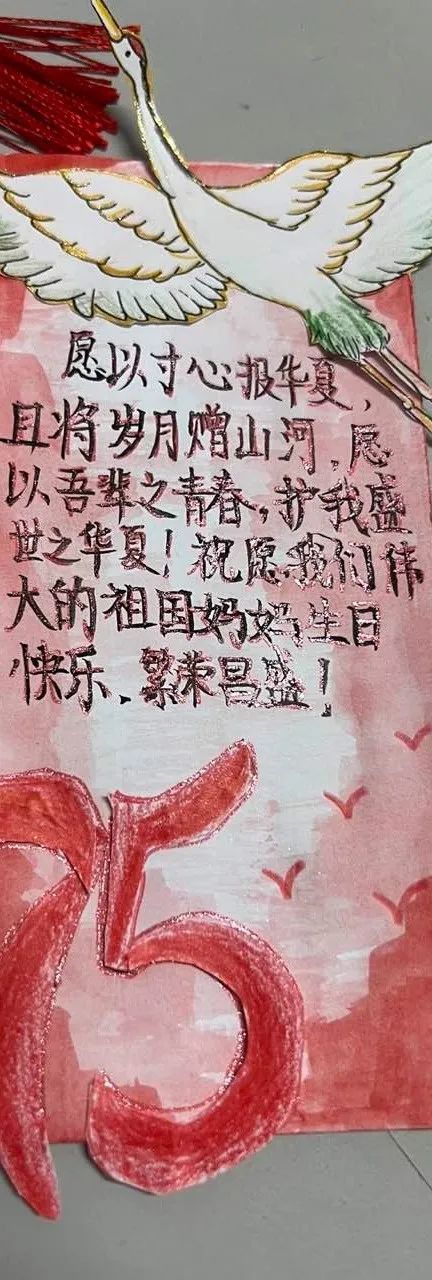 愿以寸心报华夏，
且将岁月赠山河，愿
以吾辈之青春，护我盛
世之华夏！祝愿我们伟
大的祖国妈妈生日
快乐、繁荣昌盛！
75